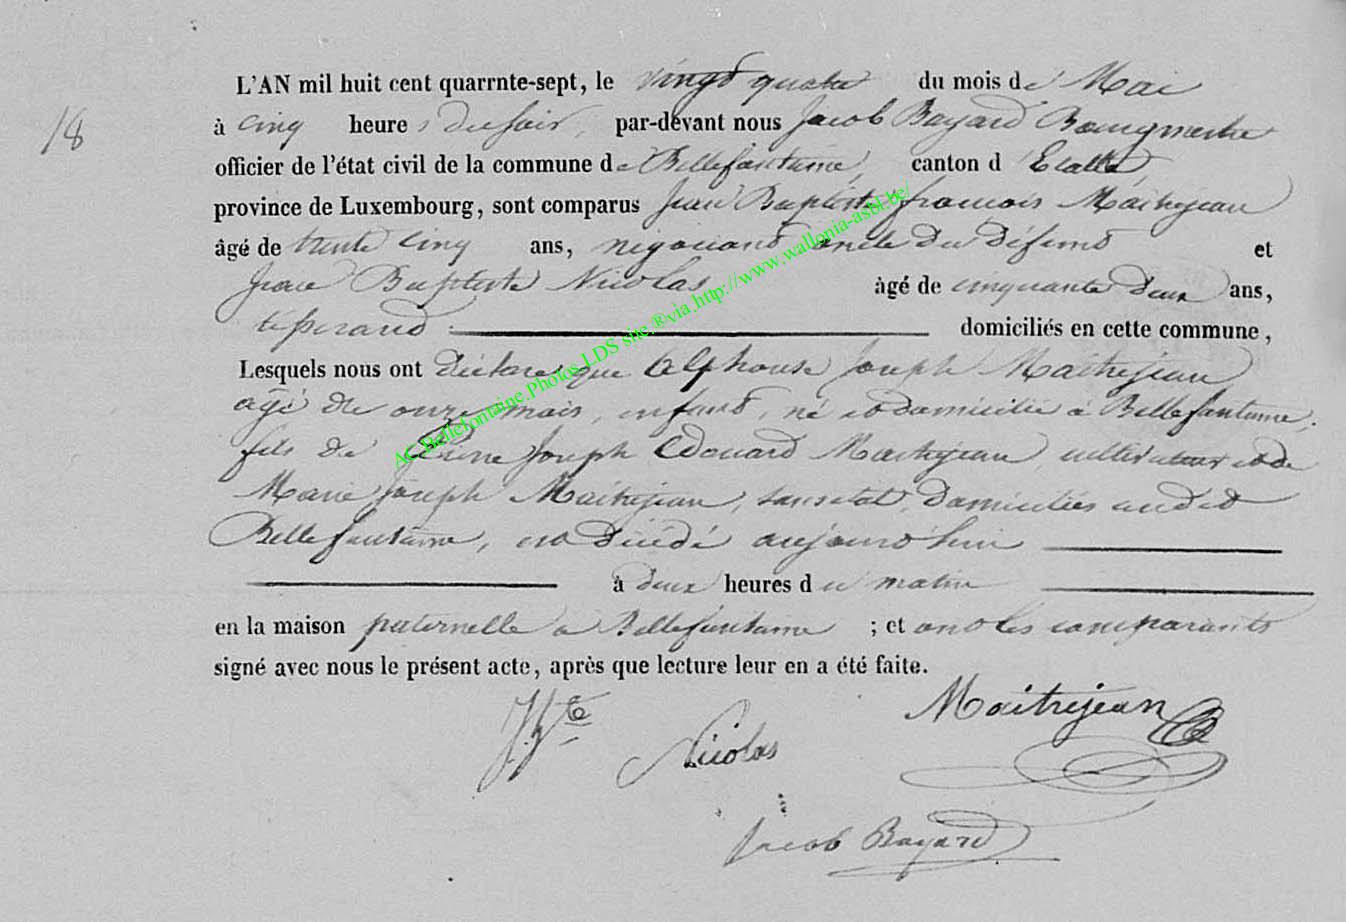 18
L'AN mil huit cent quarrnte-sept, le vingt quatre du mois de Mai
à cinq heures du soir, par-devant nous Jacob Bayard Bourgmestre
officier de l'état civil de la commune de Bellefontaine, canton d' Etalle
province de Luxembourg, sont comparus Jean Baptiste françois Maitrejean
âgé de trente cinq ans, négociant oncle du défunt et
Jean Baptiste Nicolas âgé de cinquante deux ans,
tisserand domiciliés en cette commune,
Lesquels nous ont déclaré que Alphonse Joseph Maitrejean,
agé de onze mois, enfant, né et domicilié à Bellefontaine.
fils de Pierre Joseph Edouard Maitrejean, cultivateur et de
Marie Joseph Maitrejean, sans état, domiciliés audit
Bellefontaine, est décédé aujourd'hui
à deux heures du matin
en la maison paternelle à Bellefontaine ; et ont les comparants
signé avec nous le présent acte, après que lecture leur en a été faite.
J. Bte Nicolas Maitrejean
Jacob Bayard
AC.Bellefontaine.Photos.LDS site.®via.http://www.wallonia-asbl.be/